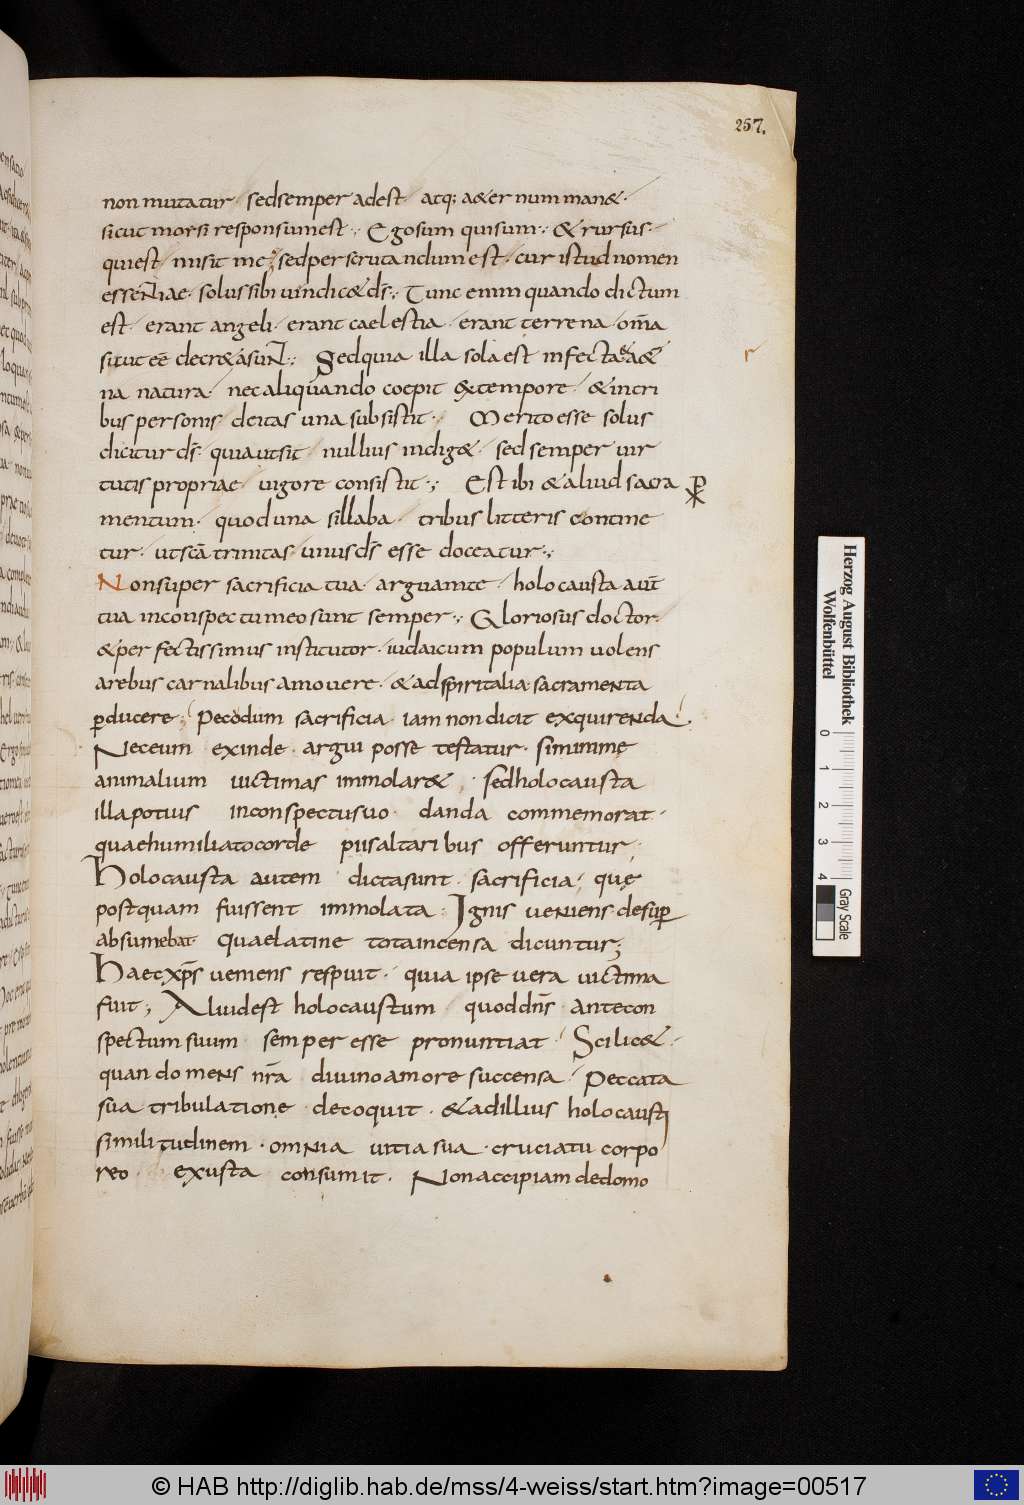 257.
non mutatur · sed semper adest · atq; a&ernum man& ·
sicut mosi responsum est ·; Ego sum qui sum ·; & rursus ·
qui est misit me ; sed perscrutandum est · cur istud nomen
essentiae · solus sibi uindic& d̄s ·; Tunc enim quando dictum
est · erant angeli · erant caelestia · erant terrena · om̄a
sicut eē decr&a sunt ·; Sed quia illa sola est infecta & a&
na natura · nec aliquando coepit ex tempore · & in tri
bus personis deitas una subsistit · Merito esse solus
dicitur d̄s · quia ut sit nullius indig& · sed semper uir
tutis propriae uigore consistit ·; Est ibi & aliud sacra
mentum · quod una sillaba tribus litteris contine
tur · ut sc̄a trinitas unus d̄s esse doceatur ·;
Non super sacrificia tua arguam te · holocausta aut̄
tua in conspectu meo sunt semper ·; Gloriosus doctor
& perfectissimus institutor · iudaicum populum uolens
a rebus carnalibus amouere · & ad spiritalia sacramenta
p̱ducere ; Pecodum sacrificia iam non dicit exquirenda ·
Nec eum exinde · argui posse testatur · si minime
animalium uictimas immolar& ; sed holocausta
illa potius in conspectu suo · danda commemorat ·
quae humiliato corde piis altaribus offeruntur ·
Holocausta autem dicta sunt · sacrificia ; quę
postquam fuissent immolata · Ignis ueniens desup̱
absumebat quae latine tota incensa dicuntur ;
Haec xp̄s ueniens respuit · quia ipse uera uictima
fuit ; Aliud est holocaustum quod dn̄s ante con
spectum suum semper esse pronuntiat · Scilic& ·
quando mens nr̄a diuino amore succensa · Peccata
sua tribulatione decoquit · & ad illius holocausti
similitudinem · omnia uitia sua · cruciatu corpo
reo exusta consumit · Non accipiam de domo
Herzog August Bibliothek
Wolfenbüttel
0 1 2 3 4
Gray Scale
© HAB http://diglib.hab.de/mss/4-weiss/start.htm?image=00517